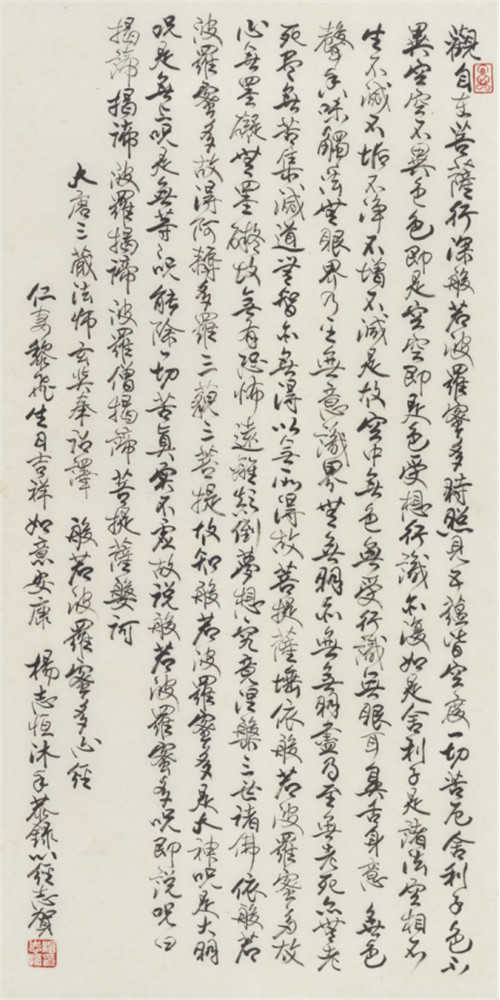 觀自在菩薩行深般若波羅蜜多時照見五蘊皆空度一切苦厄舍利子色不
異空空不異色色即是空空即是色受想行識亦復如是舍利子是諸法空相不
生不滅不垢不淨不增不減是故空中無色無受行識無眼耳鼻舌身意無色
聲香味觸法無眼界乃至無意識界無無明亦無無明盡乃至無老死亦無老
死盡無苦集滅道無智亦無得以無所得故菩提薩埵依般若波羅蜜多故
心無罣礙無罣礙故無有恐怖遠離顛倒夢想究竟涅槃三世諸佛依般若
波羅蜜多故得阿耨多羅三藐三菩提故知般若波羅蜜多是大神呪是大明
呪是無上呪是無等呪能除一切苦真實不虛故說般若波羅蜜多呪即說呪曰
揭諦揭諦波羅揭諦波羅僧揭諦菩提薩婆訶
大唐三藏法師玄奘奉詔譯 般若波羅蜜多心經
仁壽黎飛生日吉祥如意安康 楊志恒沐手恭錄心經志賀